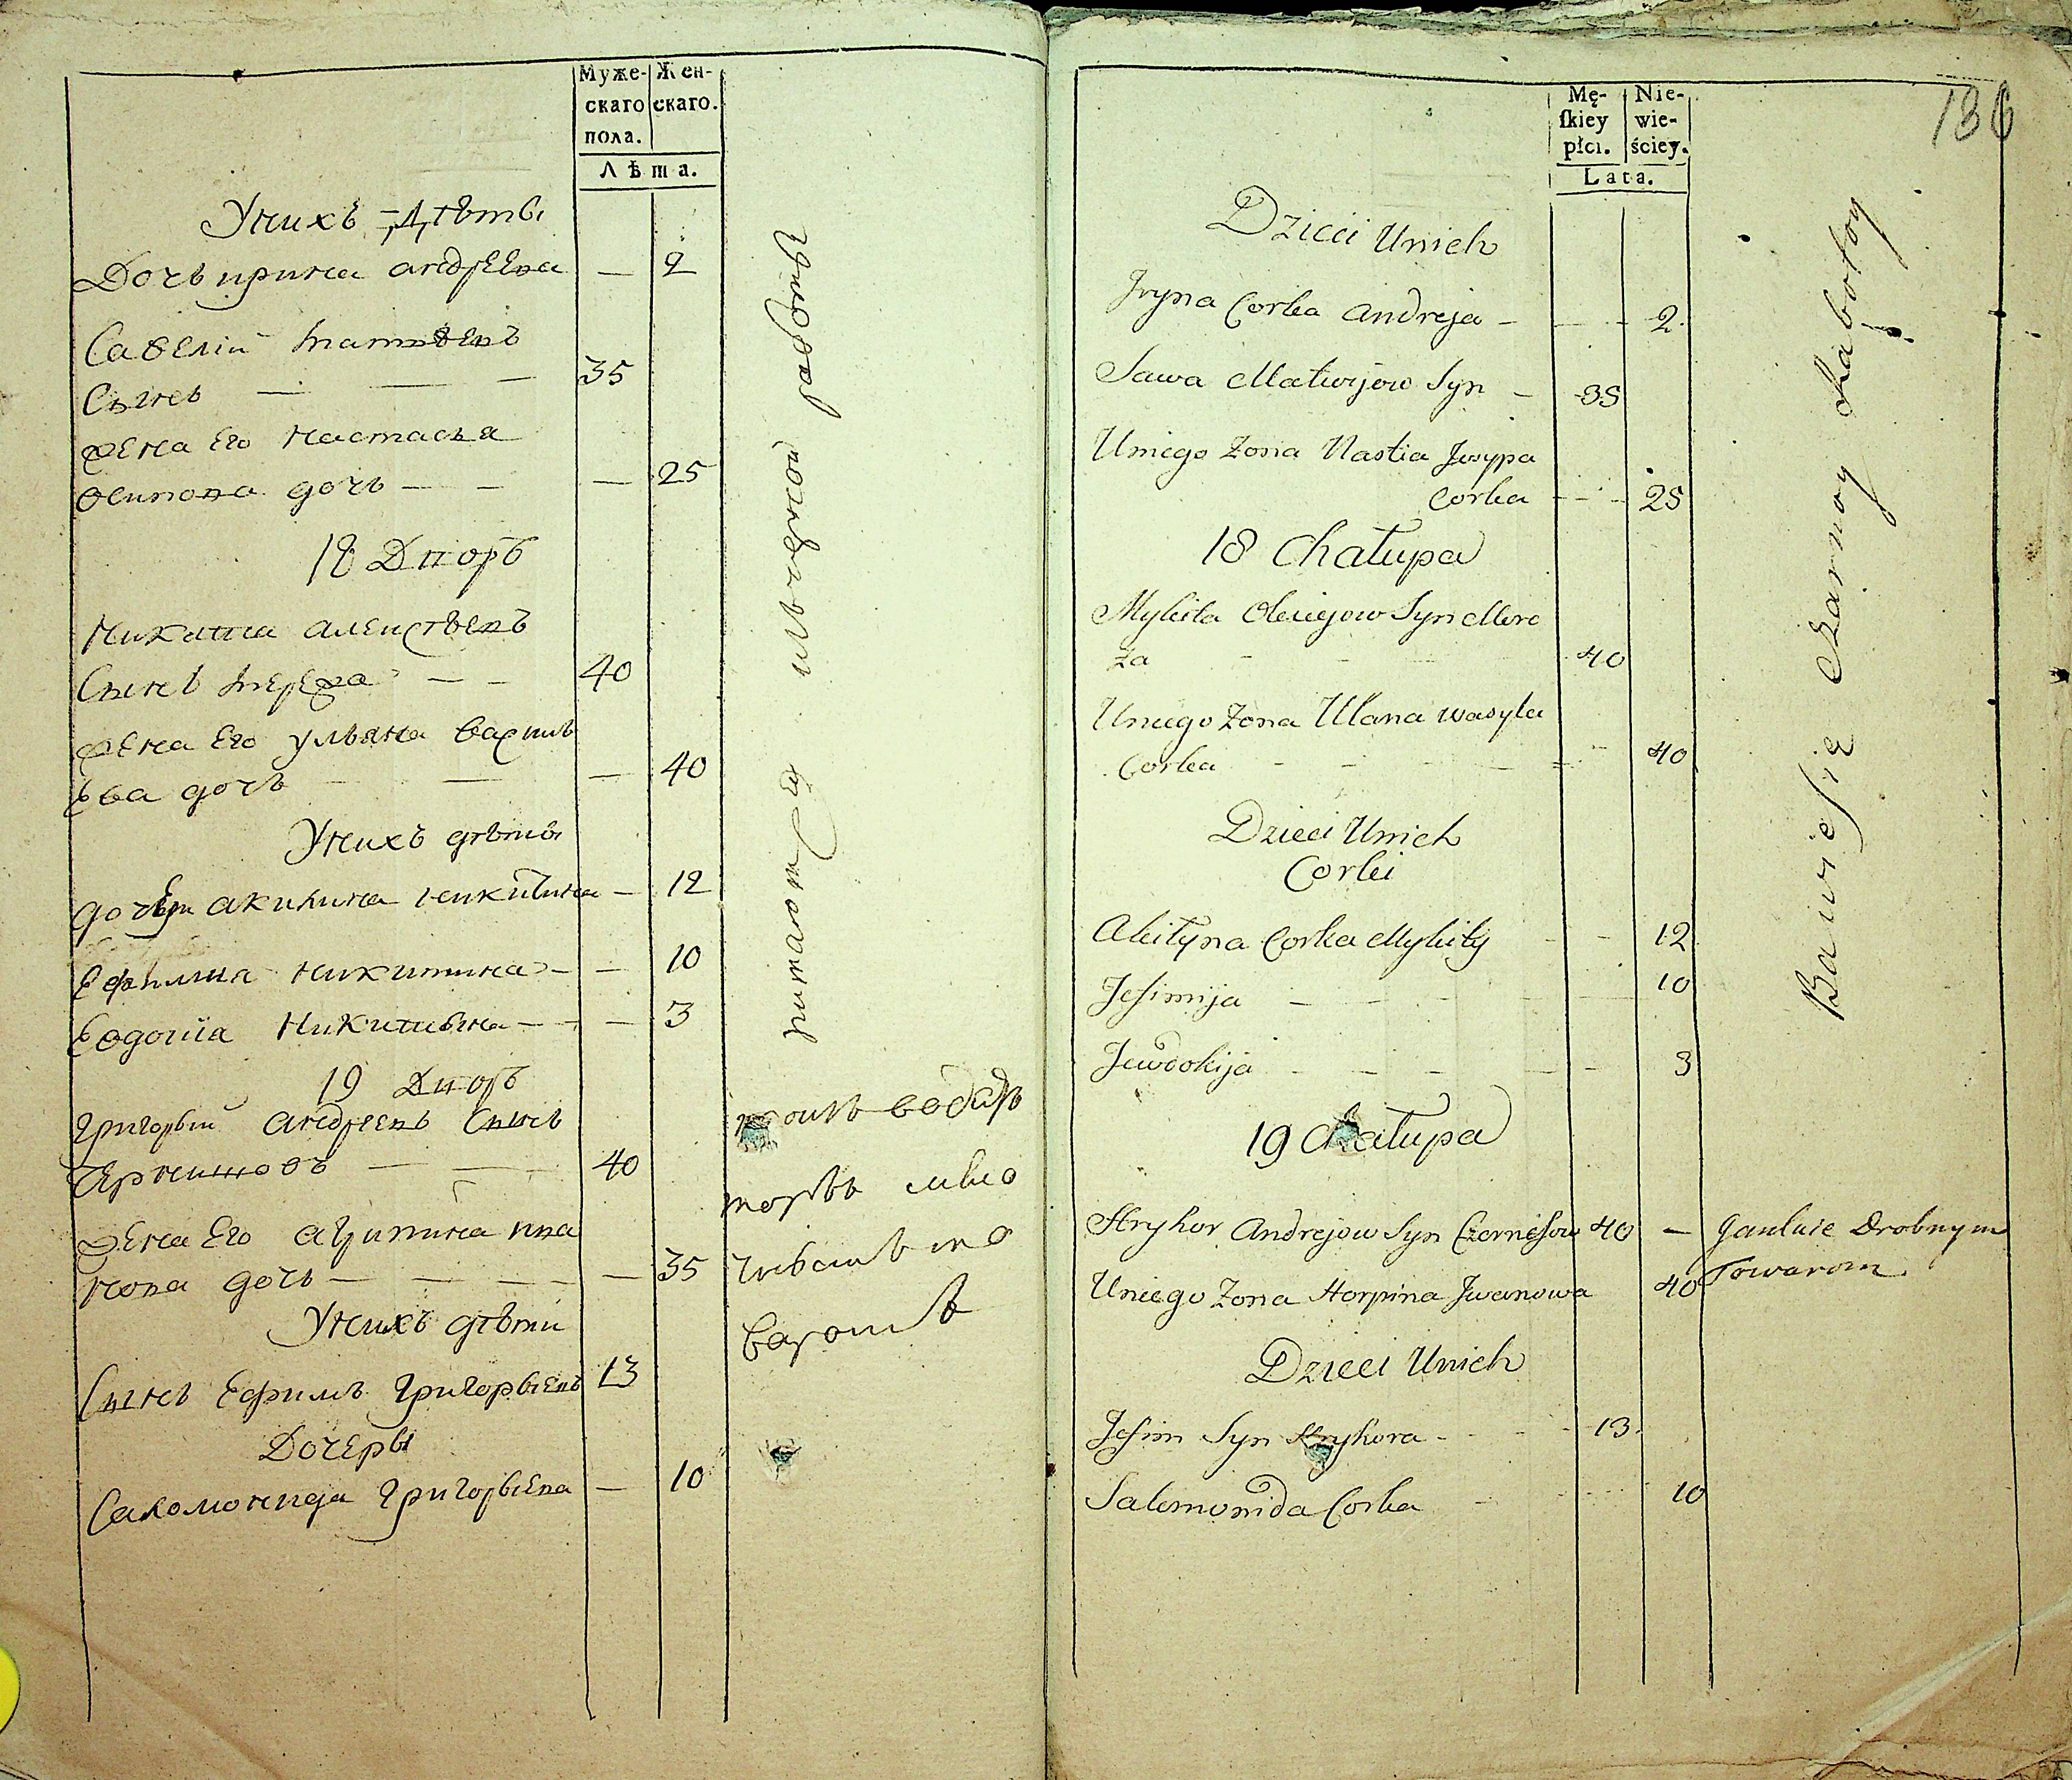 Муже-
скаго
пола.
Жен-
скаго.
Лѣта.
Унихъ Дѣти
Дочь ирина андреева — 2
Савелій матвѣевъ
Сынъ — — — 35
жена Его настасья
осипова дочь — — — 25
18 Дворъ
Никита алексѣевъ
Сынъ мережа — — 40
жена Его ульяна васил
ева дочь — — — 40
Унихъ дѣти
дочери акилина никитина — 12
Ефимия никитина — — 10
Евдокия Никитина — — — 3
19 Дворъ
Григорей андреевъ Сынъ
Чернишовъ — — 40
жена Его агрипина ива
нова дочь — — — — — 35
Унихъ дѣти
Сынъ Ефимъ григорьевъ 13
Дочеры
Саломонида григорьева — 10
питаютца чернои работою
136
Mę-
skiey
płci.
Nie-
wie-
ściey.
Lata.
Dzieci Unich
Iryna Corka Andreja — — - 2.
Sawa Matwijow Syn — 35
Uniego Zona Nastia Josypa
Corka - - - 25
18 Chałupa
Mykita Olexiejow Syn Mere
za - - - 40
Uniego Zona Ulana Wasyla
Corka - - - - - 40
Dzieci Unich
Corki
Akiłyna Corka Mykity - - 12
Jefimija — - - - - 10
Jewdokija - - - - - 3
19 Chałupa
Hryhor Andrejow Syn Czerniszow 40 — Handluie Drobnym
Towarom
Uniego Zona Horpina Jwanowa 40
Dzieci Unich
Jefim Syn Hryhora - - - - 13.
Salomonida Corka - - - 10
Bawie się Czarnoy Rabotoy